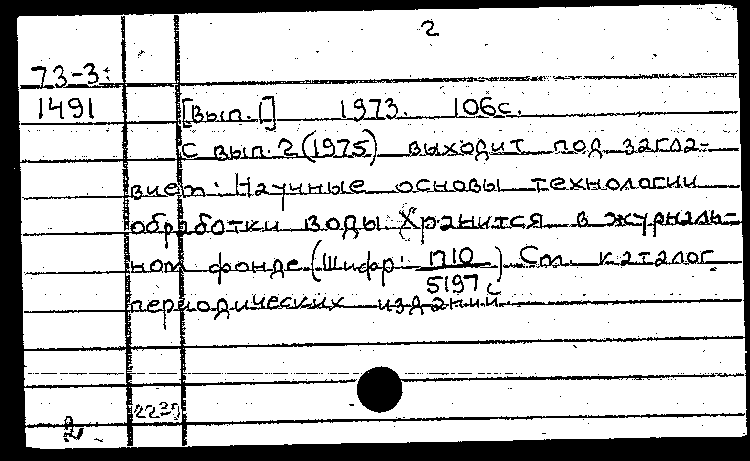 2
73-3:
1491
[Вып. I] 1973. 106с.
С вып. 2 (1975) выходит под загла-
вием: Научные основы технологии
обработки воды. Хранится в журналь-
ном фонде (Шифр: П10
5197с). См. каталог
периодических изданий
2239
2.